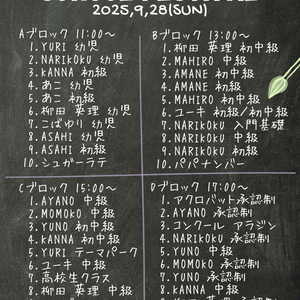 2025,9,28(SUN)
Aブロック 11:00〜
1.YURI 幼児
2.NARIKOKU 幼児
3.KANNA 初級
4.あこ 幼児
5.あこ 初級
6.柳田 英理 幼児
7.こばゆり 幼児
8.ASAHI 幼児
9.ASAHI 初級
10.シュガーラテ
Bブロック 13:00〜
1.柳田 英理 初中級
2.MAHIRO 中級
3.AMANE 初中級
4.AMANE 初級
5.MAHIRO 初級
6.ユーキ 初級/初中級
7.NARIKOKU 入門基礎
8.NARIKOKU 中級
9.NARIKOKU 初級
10.パパナンバー
Cブロック 15:00〜
1.AYANO 中級
2.MOMOKO 中級
3.YUNO 初中級
4.KANNA 初中級
5.YURI テーマパーク
6.ユーキ 中級
7.高校生クラス
8.柳田 英理 中級
Dブロック 17:00〜
1.アクロバット承認制
2.AYANO 承認制
3.コンクール アラジン
4.NARIKOKU 承認制
5.YUNO 中級
6.MOMOKO 承認制
7.YUNO 承認制
8.KANNA 中級